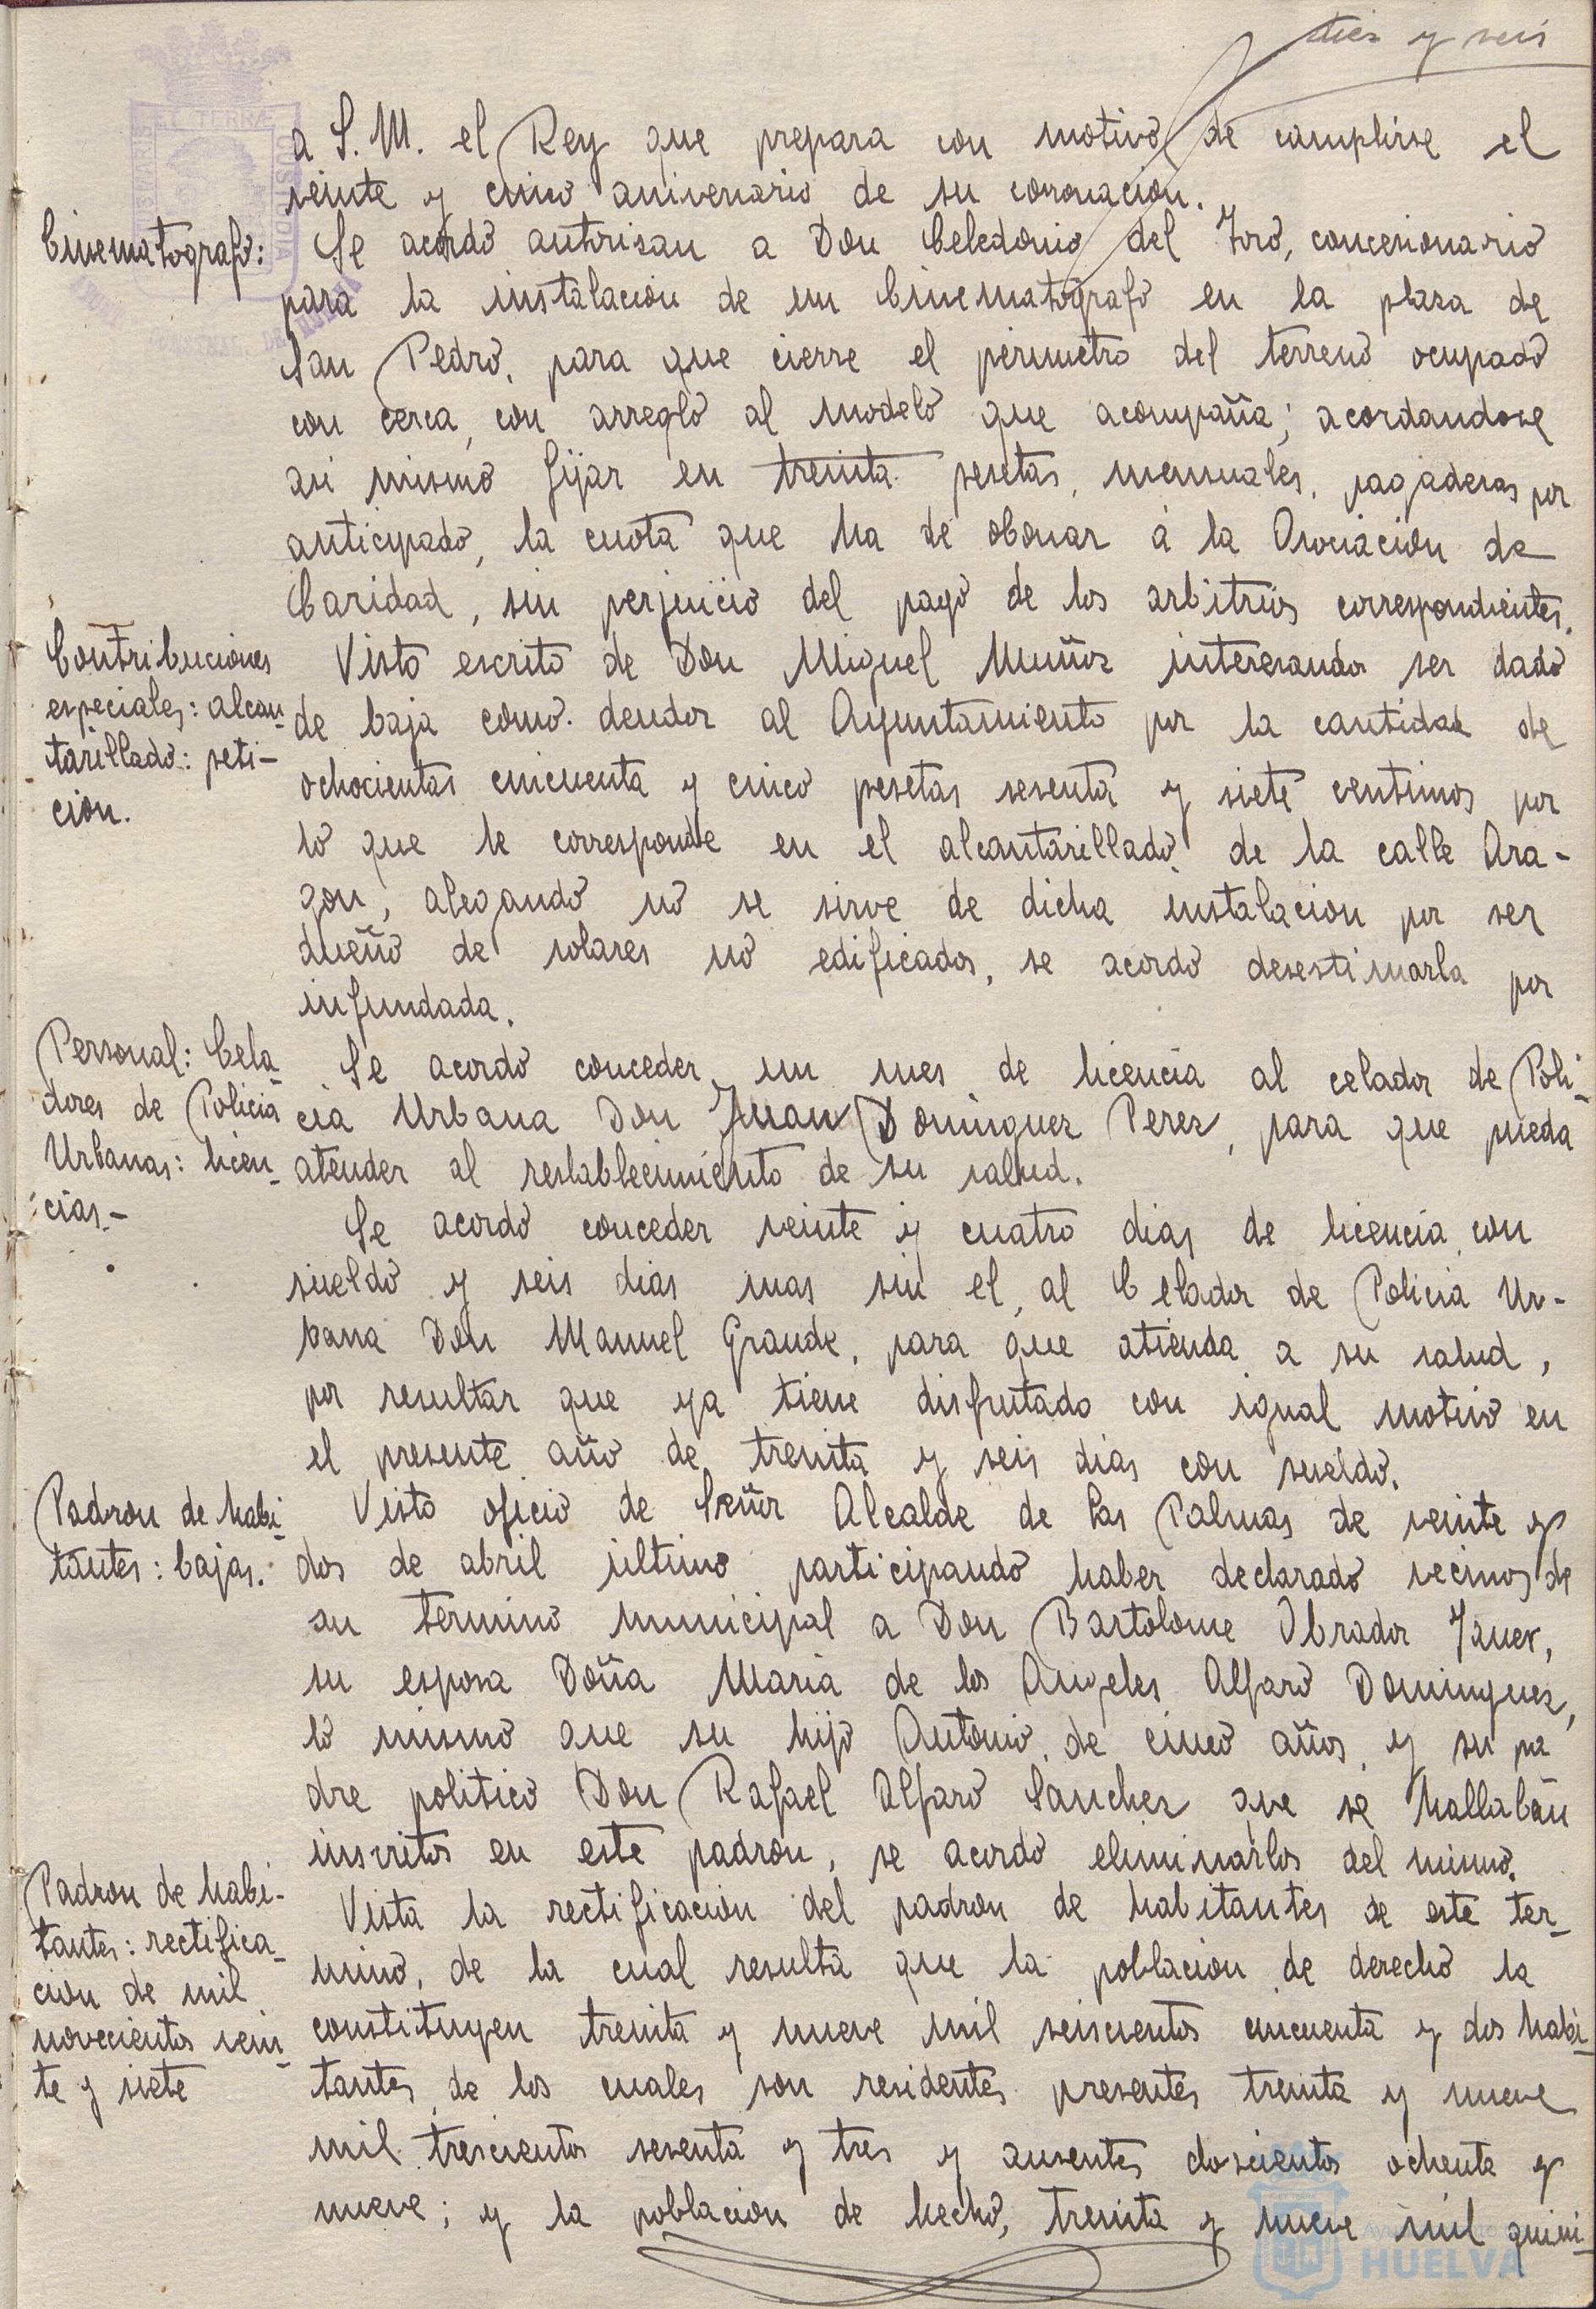 diez y seis
a S. M. el Rey que prepara con motivo de cumplirse el
veinte y cinco aniversario de su coronacion.
Cinematografo:
Se acordó autorisau a Don Celedonio del Toro, concesionario
para la instalacion de un Cinematografo en la plaza de
San Pedro, para que cierre el perimetro del terreno ocupado
con cerca, con arreglo al modelo que acompaña; acordandose
asi mismo fijar en treinta pesetas, mensuales, pagaderas por
anticipado, la cuota que ha de obonar á la Asociacion de
Caridad, sin perjuicio del pago de los arbitrios correspondientes.
Contribuciones
especiales: alcan-
tarillado: peti-
cion.
Visto escrito de Don Miguel Muñoz interesando ser dado
de baja como deudor al Ayuntamiento por la cantidad de
ochocientas cincuenta y cinco pesetas sesenta y siete centimos por
lo que le corresponde en el alcantarillado de la calle Ara-
gon, alegando no se sirve de dicha instalacion por ser
dueño de solares no edificados, se acordó desestimarla por
infundada.
Personal: Cela-
dores de Policia
Urbanas: licen-
cias.-
Se acordó conceder un mes de licencia al celador de Poli-
cia Urbana Don Juan Dominguez Perez, para que pueda
atender al restablecimiento de su salud.
Se acordó conceder veinte y cuatro dias de licencia con
sueldo y seis dias mas sin el, al Celador de Policia Ur-
bana Don Manuel Grande, para que atienda a su salud,
por resultar que ya tiene disfrutado con igual motivo en
el presente año de treinta y seis dias con sueldo.
Padron de habi-
tantes: bajas.
Visto oficio de Señor Alcalde de Las Palmas de veinte y
dos de abril ultimo participando haber declarado vecinos de
su termino municipal a Don Bartolome Obrador Janer,
su esposa Doña Maria de los Angeles Alfaro Dominguez,
lo mismo que su hijo Antonio, de cinco años, y su pa
dre politico Don Rafael Alfaro Sanchez que se hallaban
inscritos en este padron, se acordó eliminarlos del mismo.
Padron de habi-
tantes: rectifica-
cion de mil
novecientos vein-
te y siete
Vista la rectificacion del padron de habitantes de este ter-
mino, de la cual resulta que la poblacion de derecho la
constituyen treinta y nueve mil seiscientos cincuenta y dos habi-
tantes de los cuales son residentes presentes treinta y nueve
mil trescientos sesenta y tres y ausentes doscientos ochenta y
nueve; y la poblacion de hecho, treinta y nueve mil quini-
HUELVA